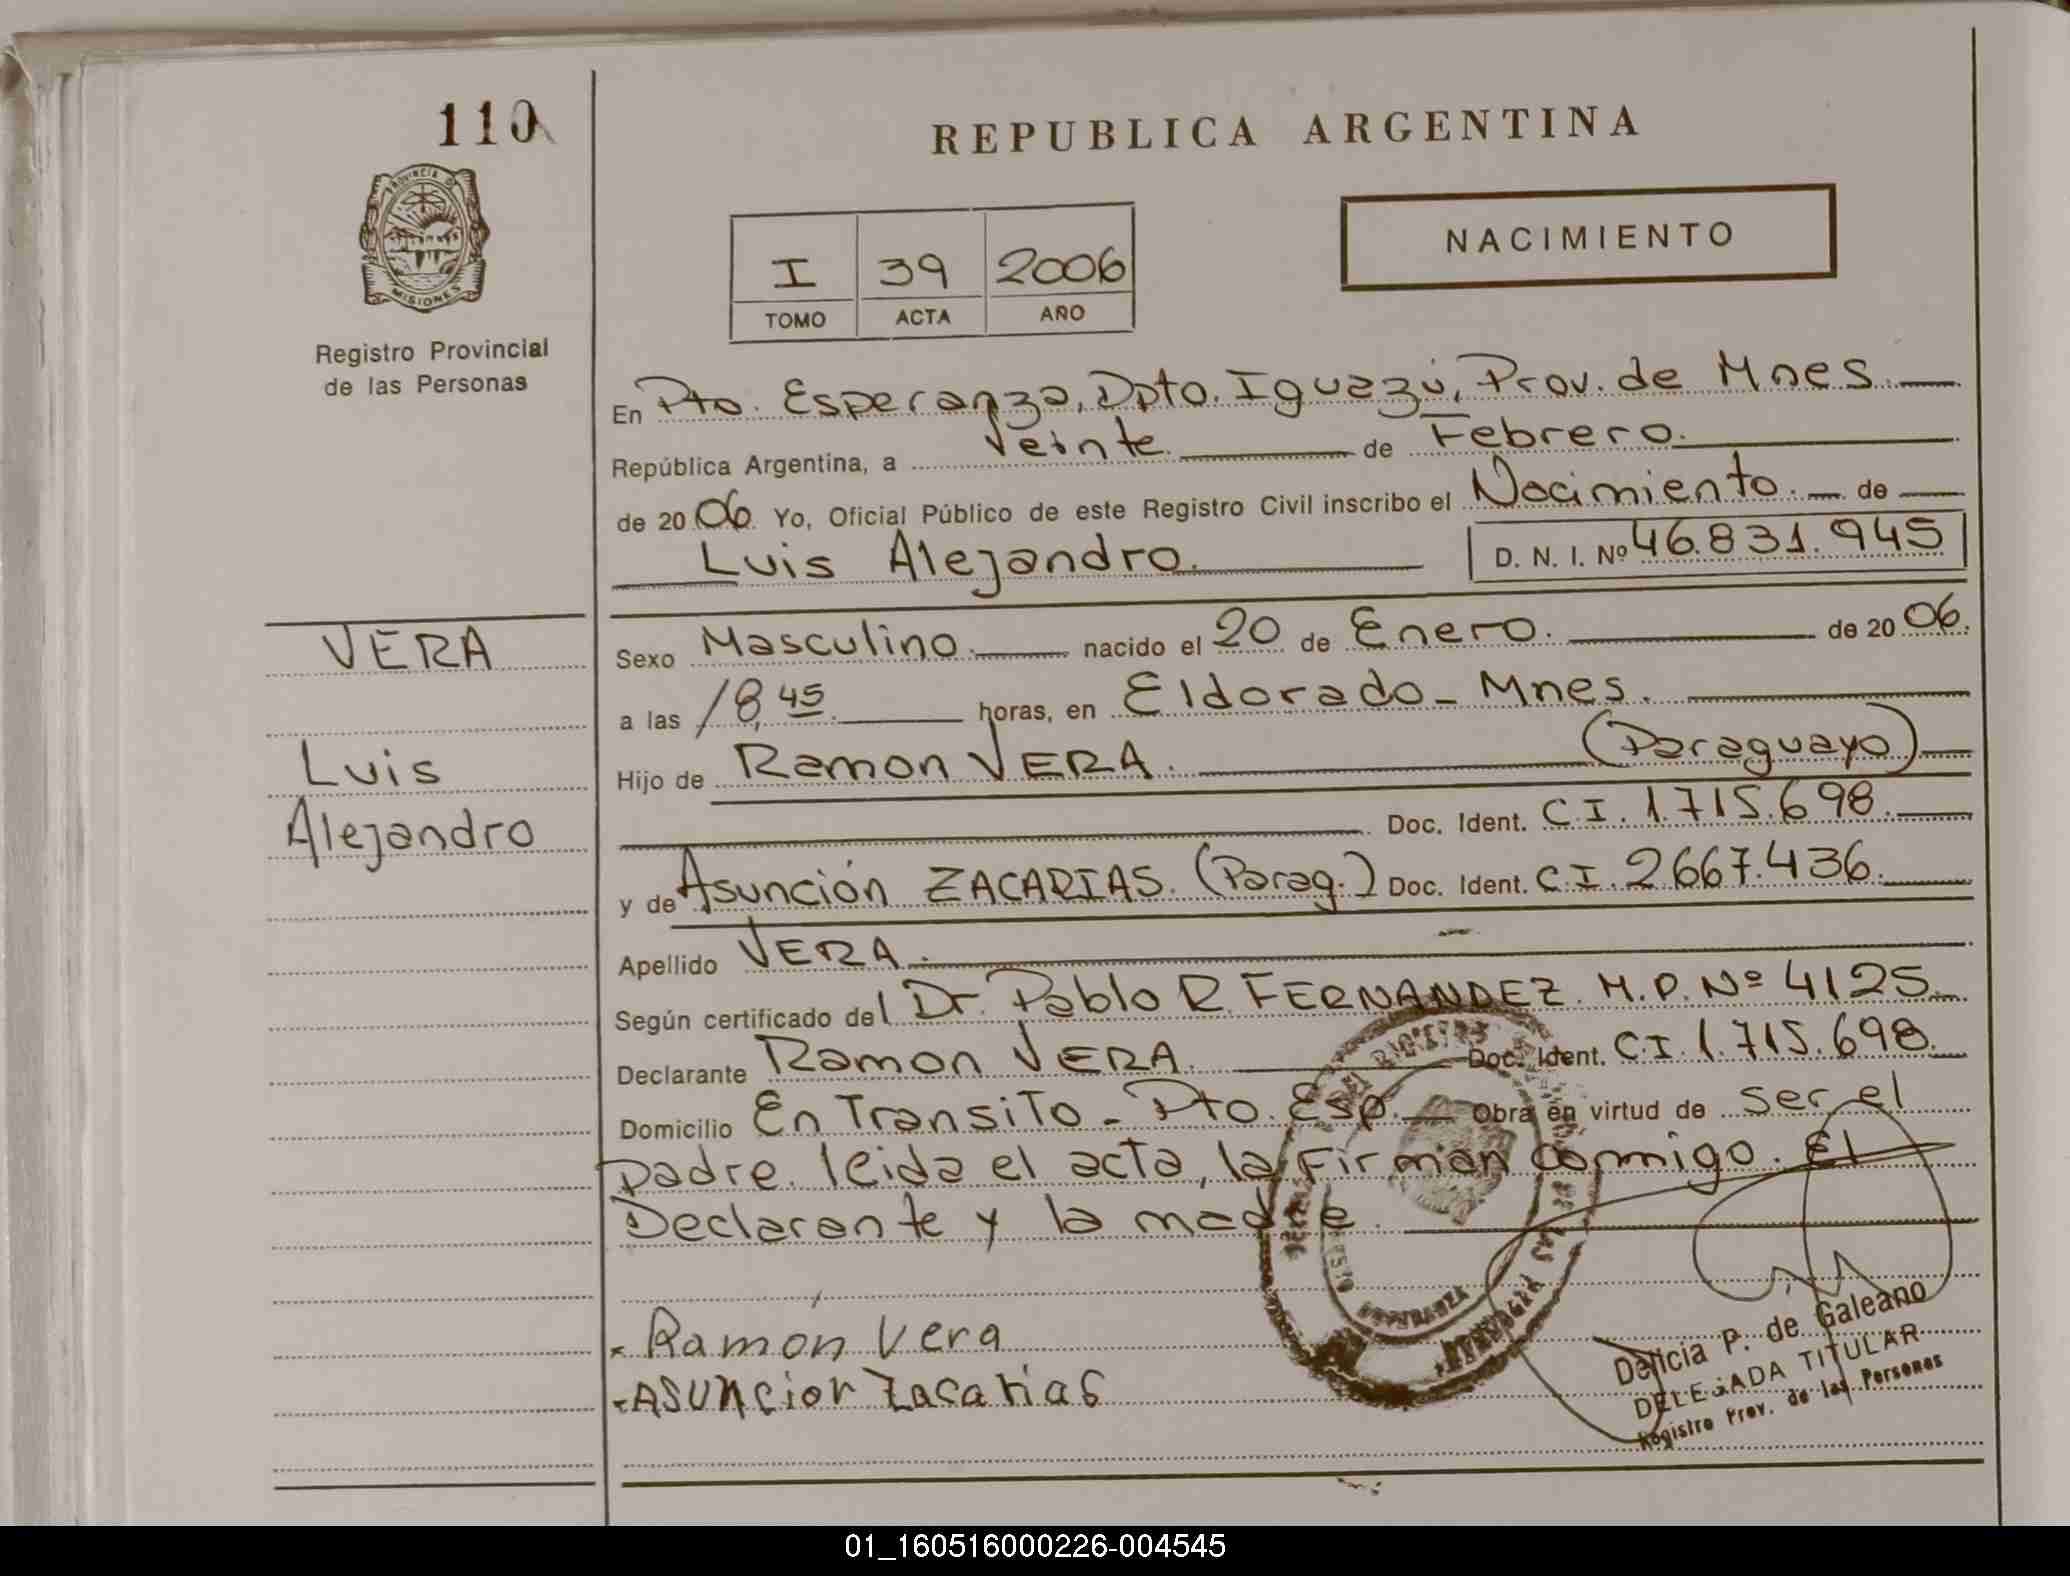 110
REPUBLICA ARGENTINA
PROVINCIA DE
MISIONES
NACIMIENTO
I 39 2006
TOMO ACTA AÑO
Registro Provincial
de las Personas
En Pto. Esperanza, Dpto. Iguazú, Prov. de Mnes.
República Argentina, a Veinte. de Febrero.
de 2006 Yo, Oficial Público de este Registro Civil inscribo el Nacimiento. de
Luis Alejandro. D. N. I. Nº 46.831.945
VERA
Luis
Alejandro
Sexo Masculino. nacido el 20 de Enero. de 2006.
a las 18,45 horas, en Eldorado - Mnes.
Hijo de Ramon VERA. (Paraguayo)
Doc. Ident. C.I. 1.715.698.
y de Asunción ZACARIAS. (Parag.) Doc. Ident. C.I. 2667.436.
Apellido VERA.
Según certificado del Dr. Pablo R. FERNANDEZ. M.P. Nº 4125.
Declarante Ramon VERA. Doc. Ident. C.I. 1.715.698.
Domicilio En Transito - Pto. Esp. Obra en virtud de ser el
padre. leida el acta, la firman conmigo. El
Declarante y la madre.
Ramón Vera
Asuncion Zacarias
Delicia P. de Galeano
DELEGADA TITULAR
Registro Prov. de las Personas
01_160516000226-004545